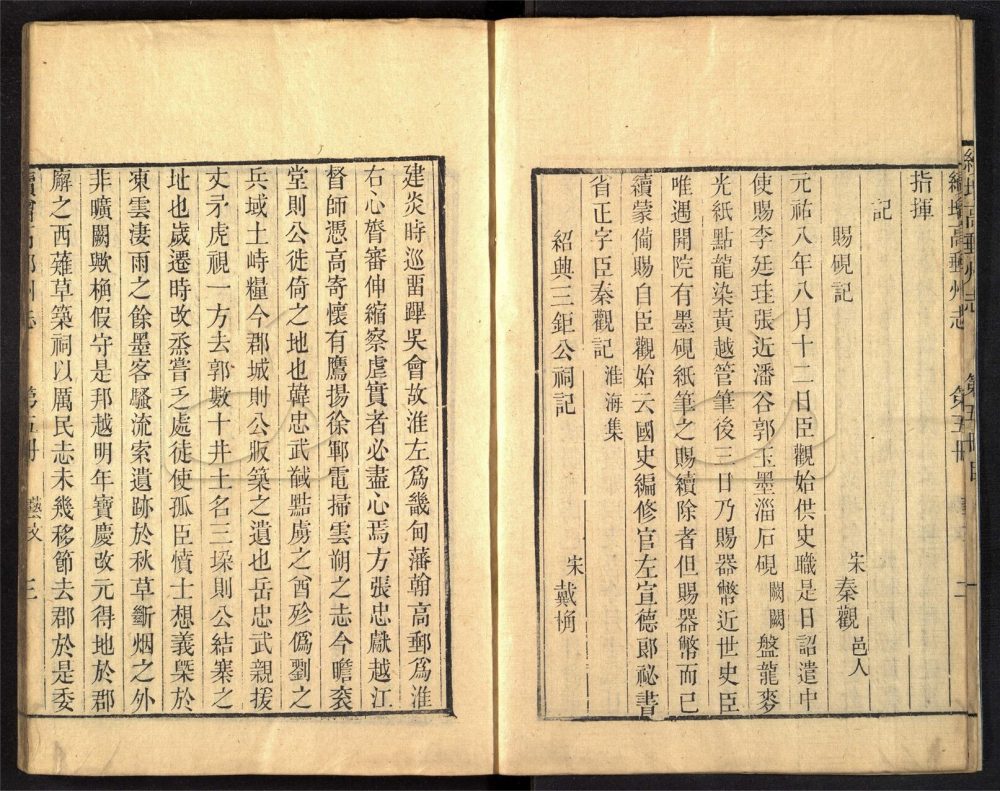 續增高郵州志 第五冊
指揮
記
賜硯記 宋秦觀邑人
元祐八年八月十二日臣觀始供史職是日詔遣中
使賜李廷珪張近潘谷郭玉墨淄石硯闕闕盤龍麥
光紙點龍染黃越管筆後三日乃賜器幣近世史臣
唯遇開院有墨硯紙筆之賜續除者但賜器幣而已
續蒙備賜自臣觀始云國史編修官左宣德郎祕書
省正字臣秦觀記淮海集
紹興三鉅公祠記 宋戴桷
建炎時巡畱蹕吳會故淮左爲畿甸藩翰高郵爲淮
右心膂審伸縮察虛實者必盡心焉方張忠獻越江
督師憑高寄懷有鷹揚徐鄆電掃雲朔之志今瞻袞
堂則公徙倚之地也韓忠武馘點虜之酋殄僞劉之
兵域土峙糧今郡城則公版築之遺也岳忠武親援
丈矛虎視一方去郭數十井土名三垜則公結寨之
址也歲遷時改烝嘗乏處徒使孤臣憤士想義槩於
凍雲淒雨之餘墨客騷流索遺跡於秋草斷烟之外
非曠闕歟桷假守是邦越明年寶慶改元得地於郡
廨之西薙草築祠以厲民志未幾移節去郡於是委
續增高郵州志 第五冊 藝文 三